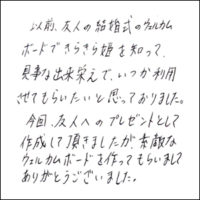 以前、友人の結婚式のウェルカム
ボードできらきら姫を知って、
見事な出来栄えで、いつか利用
させてもらいたいと思っておりました。
今回、友人へのプレゼントとして
作成して頂きましたが、素敵な
ウェルカムボードを作ってもらいまして
ありがとうございました。